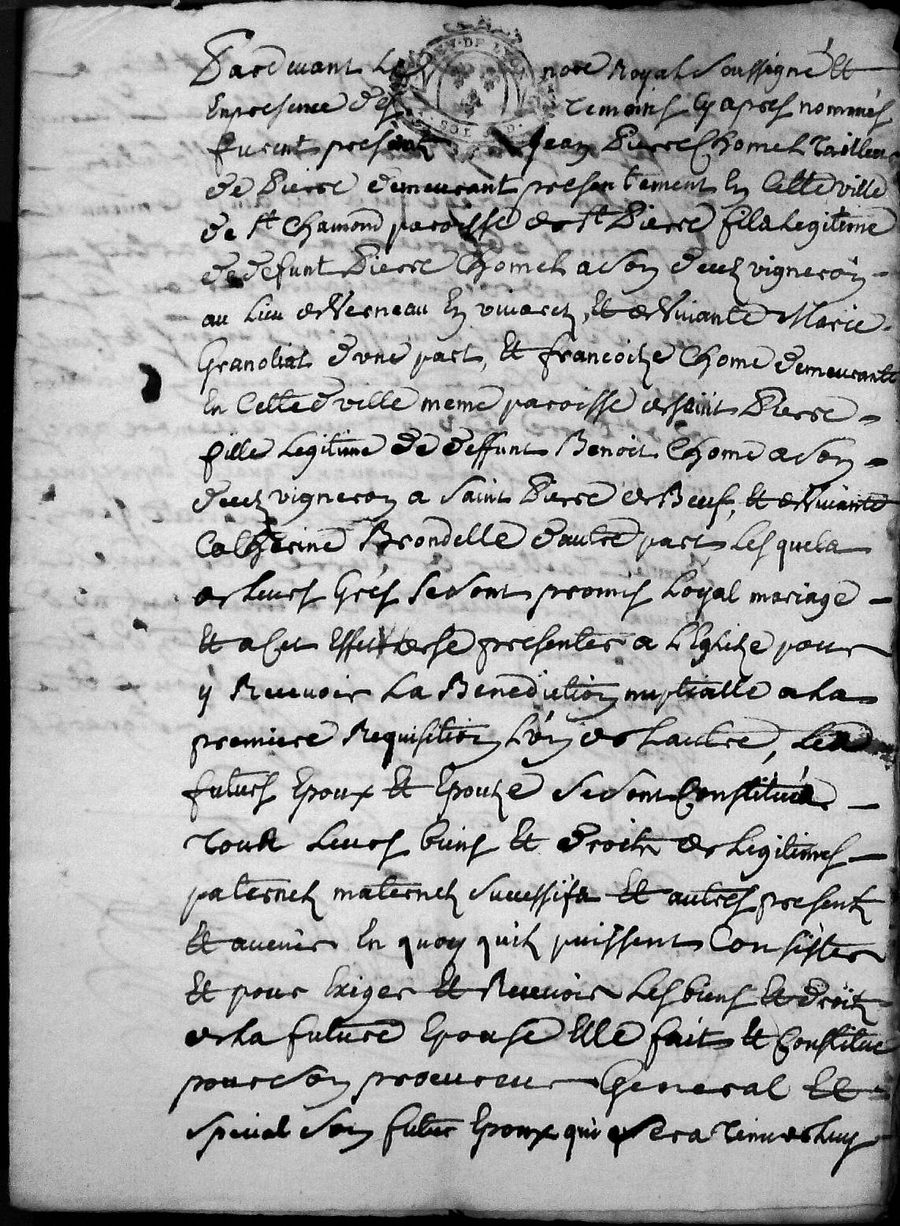 Pardevant Le nore Royal Soussigné Et
En presence des Temoins Cy apres nommés
furent présents Jean Pierre Chomel Tailleur
de Pierre demeurant presentement En Cette ville
de St Chamond paroisse de St Pierre fils Legitime
de defunt Pierre Chomel a son deceds vigneron
au Lieu de Verneau En vivarez, Et de Vivante Marie
Granoliat d'une part, Et francoize Chome demeurante
En Cette d ville meme paroisse de saint Pierre
fille Legitime de deffunt Benoit Chome a son
deceds vigneron a Saint Pierre de Bœuf, Et de Vivante
Catherine Brondelle d'autre part Les quels
de Leurs Grés se sont promis Loyal mariage
Et a Cet Effet de se presenter a L'Eglize pour
y Recevoir La Benediction nuptialle a La
premiere Requisition L'un de Lautre, Les
futurs Epoux Et Epouze se sont Constitués
Tous Leurs biens Et droits de Legitimes
paternels maternels Successifs Et autres presents
Et avenir En quoy quils puissent Consister
Et pour Exiger Et Recevoir Les biens Et droits
de La future Epouse Elle fait Et Constitue
pour son procureur General Et
Special son futur Epoux qui Sera Tenu de Luy